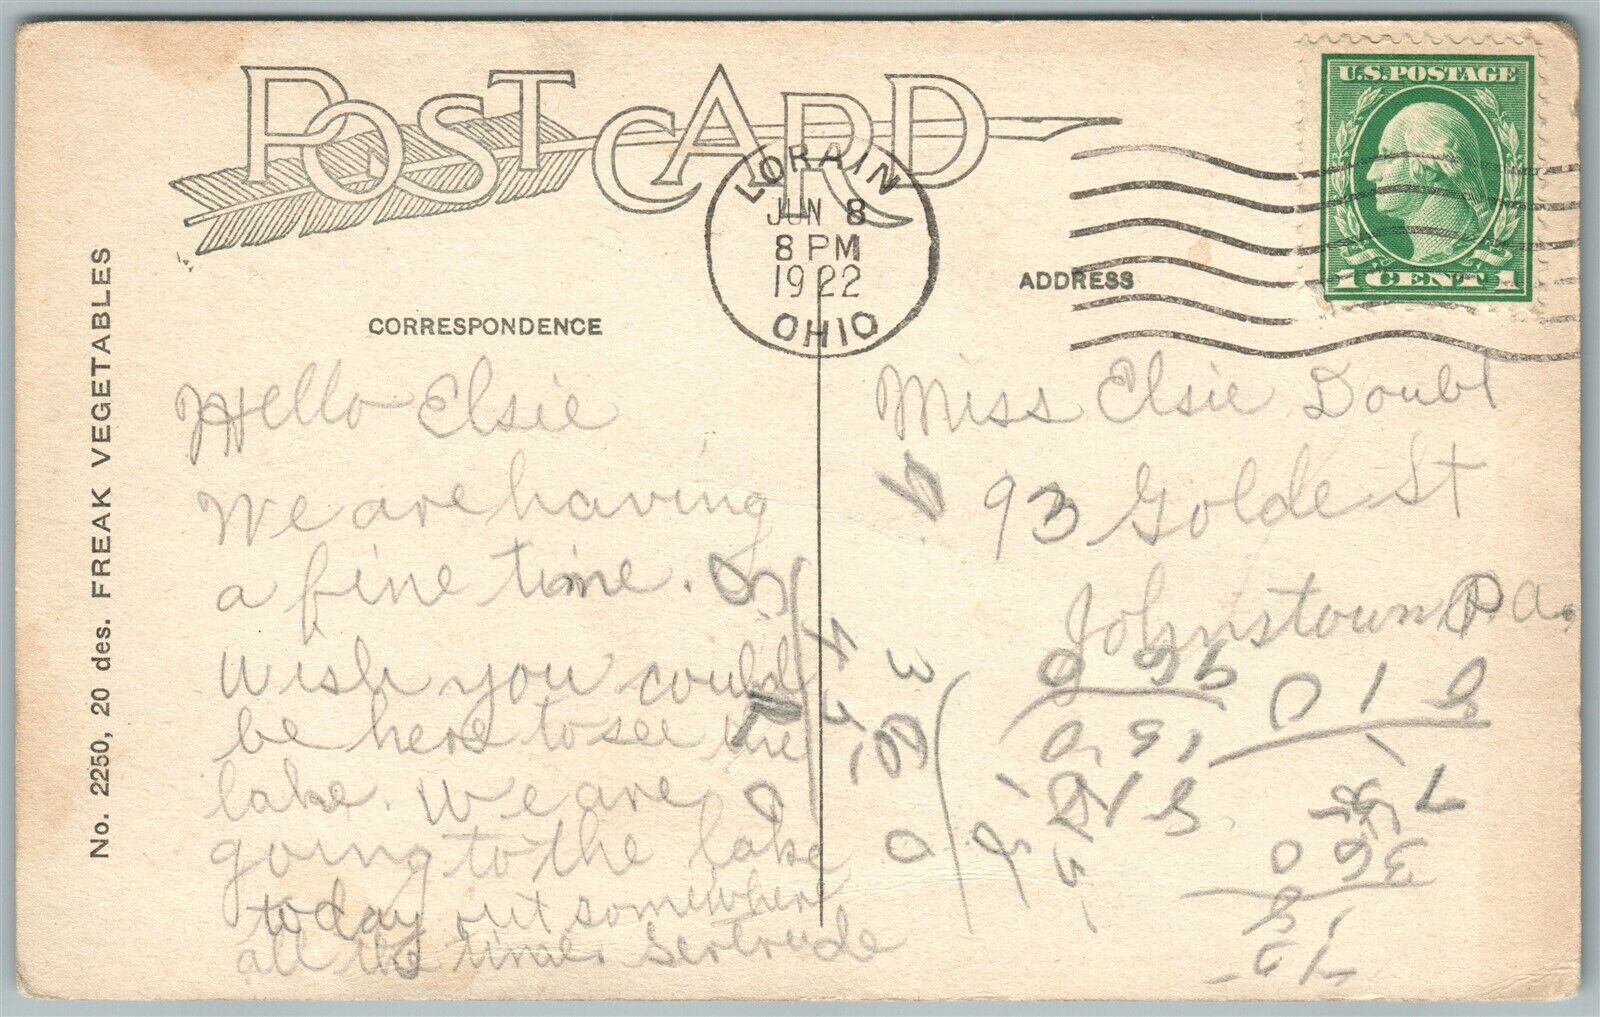 POST CARD
U.S. POSTAGE
1 CENT 1
LORAIN
JUN 8
8 PM
1922
OHIO
ADDRESS
CORRESPONDENCE
No. 2250, 20 des. FREAK VEGETABLES
Hello Elsie
We are having
a fine time.
Wish you could
be here to see the
lake. We are
going to the lake
today out somewhere
all the time. Gertrude
Miss Elsie Doubt
93 Golde St
Johnstown Pa.